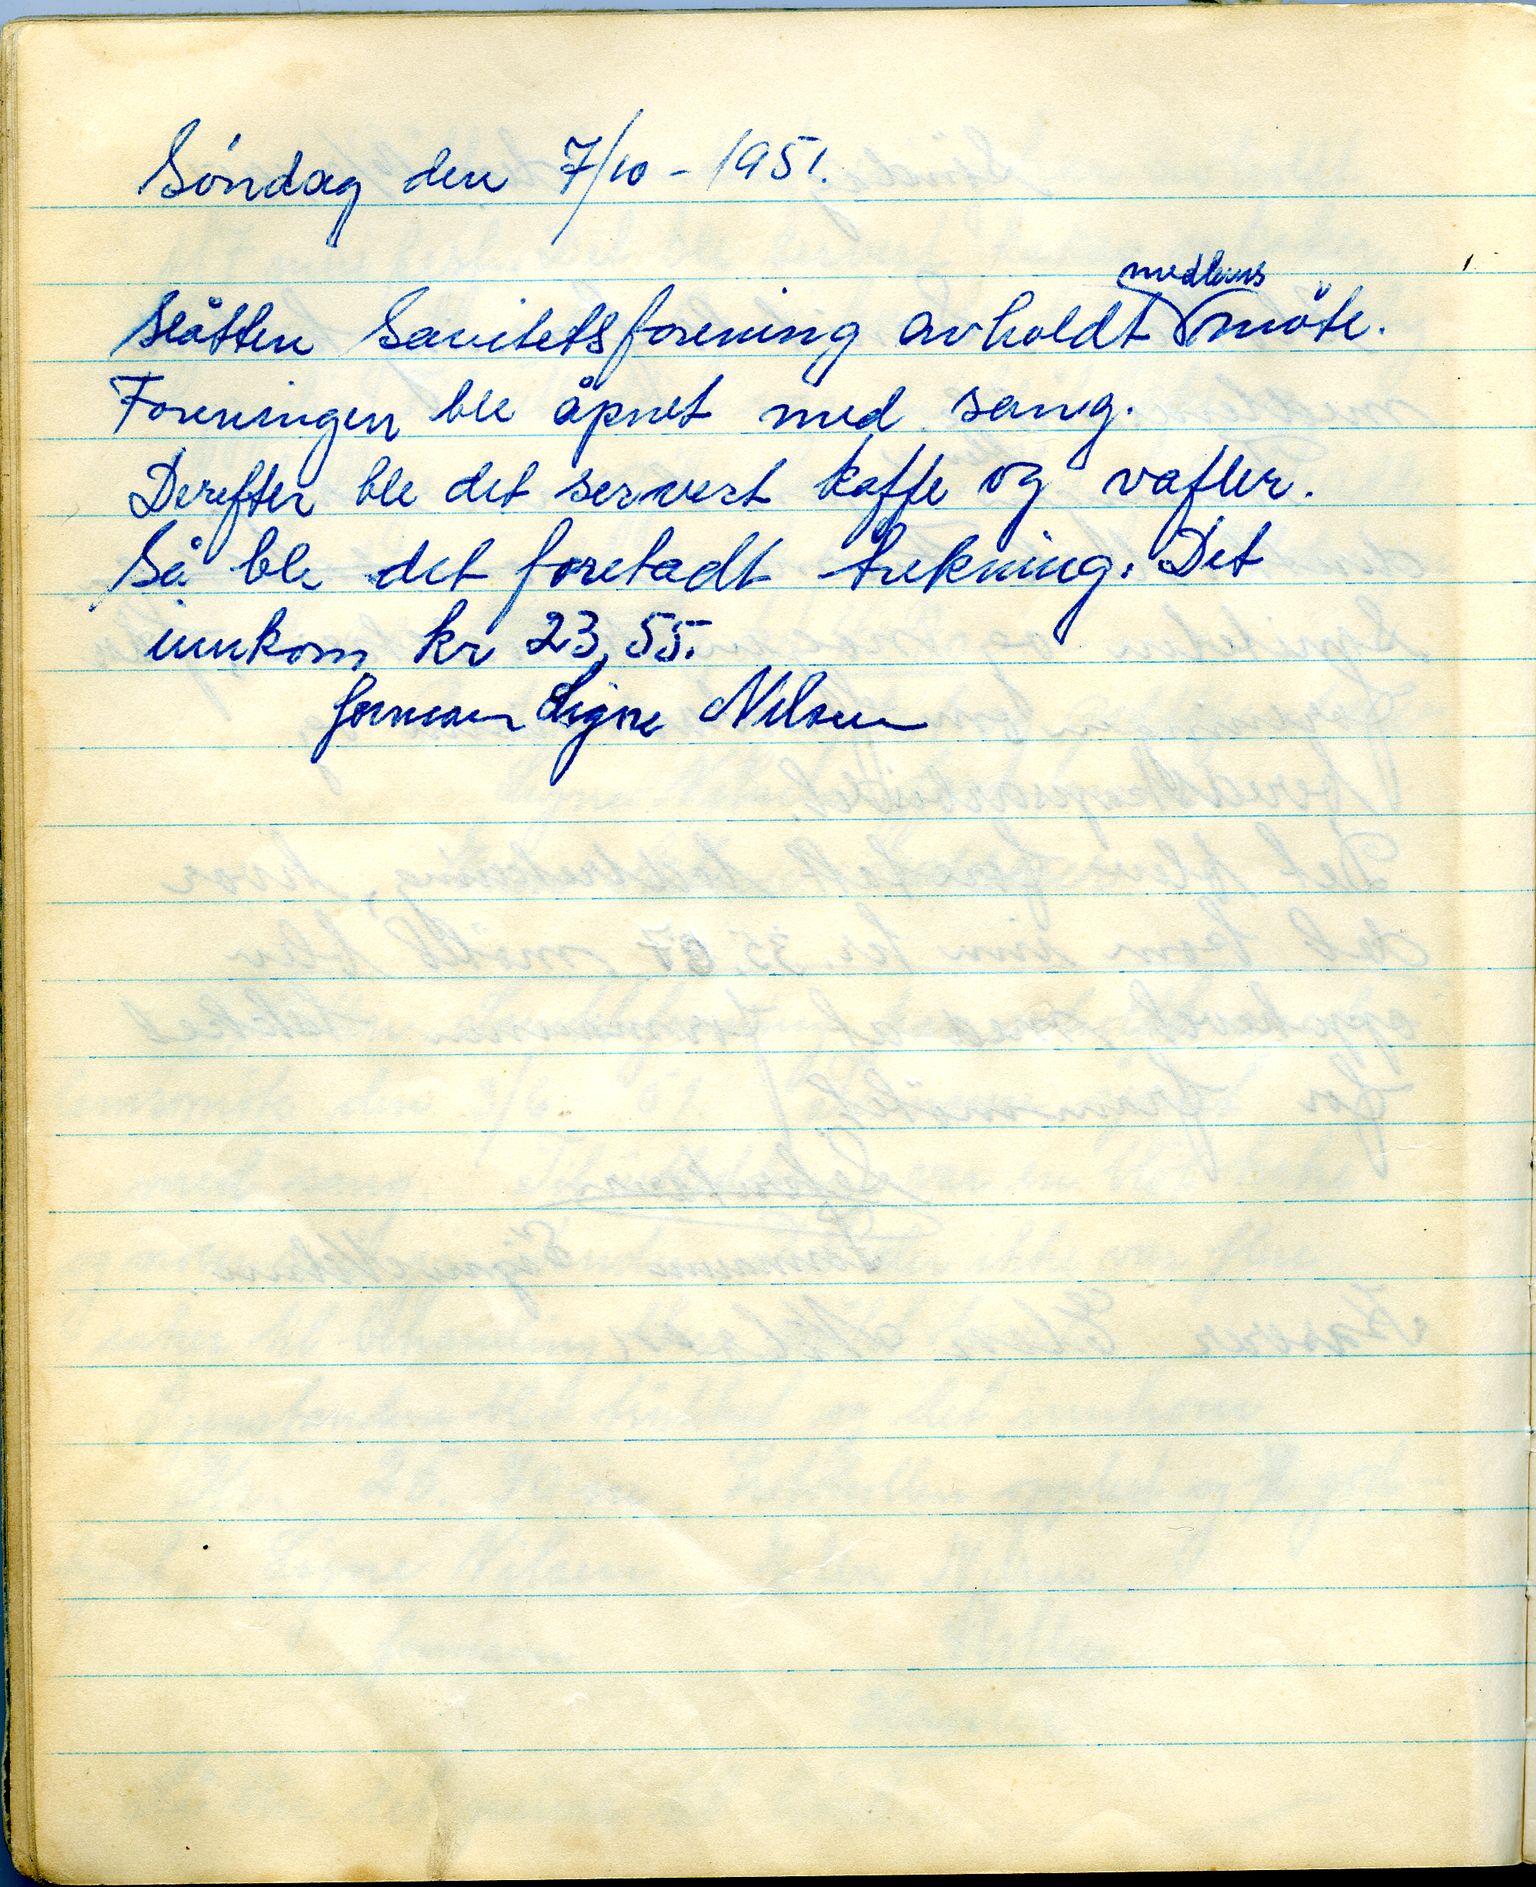 Søndag den 7/10 - 1951.
Slåtten Sanitetsforening avholdt medlems möte.
Foreningen ble åpnet med sang.
Derefter ble det servert kaffe og vafler.
Så ble det foretadt trekning. Det
innkom kr 23,55.
formann Signe Nilsen